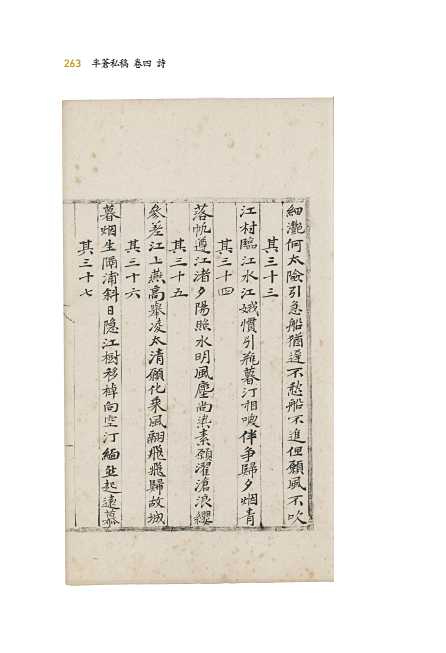 263 半蒼私稿 卷四 詩
細灔何太險引急船猶遲不愁船不進但願風不吹
其三十三
江村臨江水江娥慣引瓶暮汀相喚伴爭歸夕烟青
其三十四
落帆遵江渚夕陽照水明風塵尚染素願濯滄浪纓
其三十五
參差江上燕高舉凌太清願化乘風翮飛飛歸故城
其三十六
暮烟生隔浦斜日隱江樹移棹向空汀緬並起遠慕
其三十七